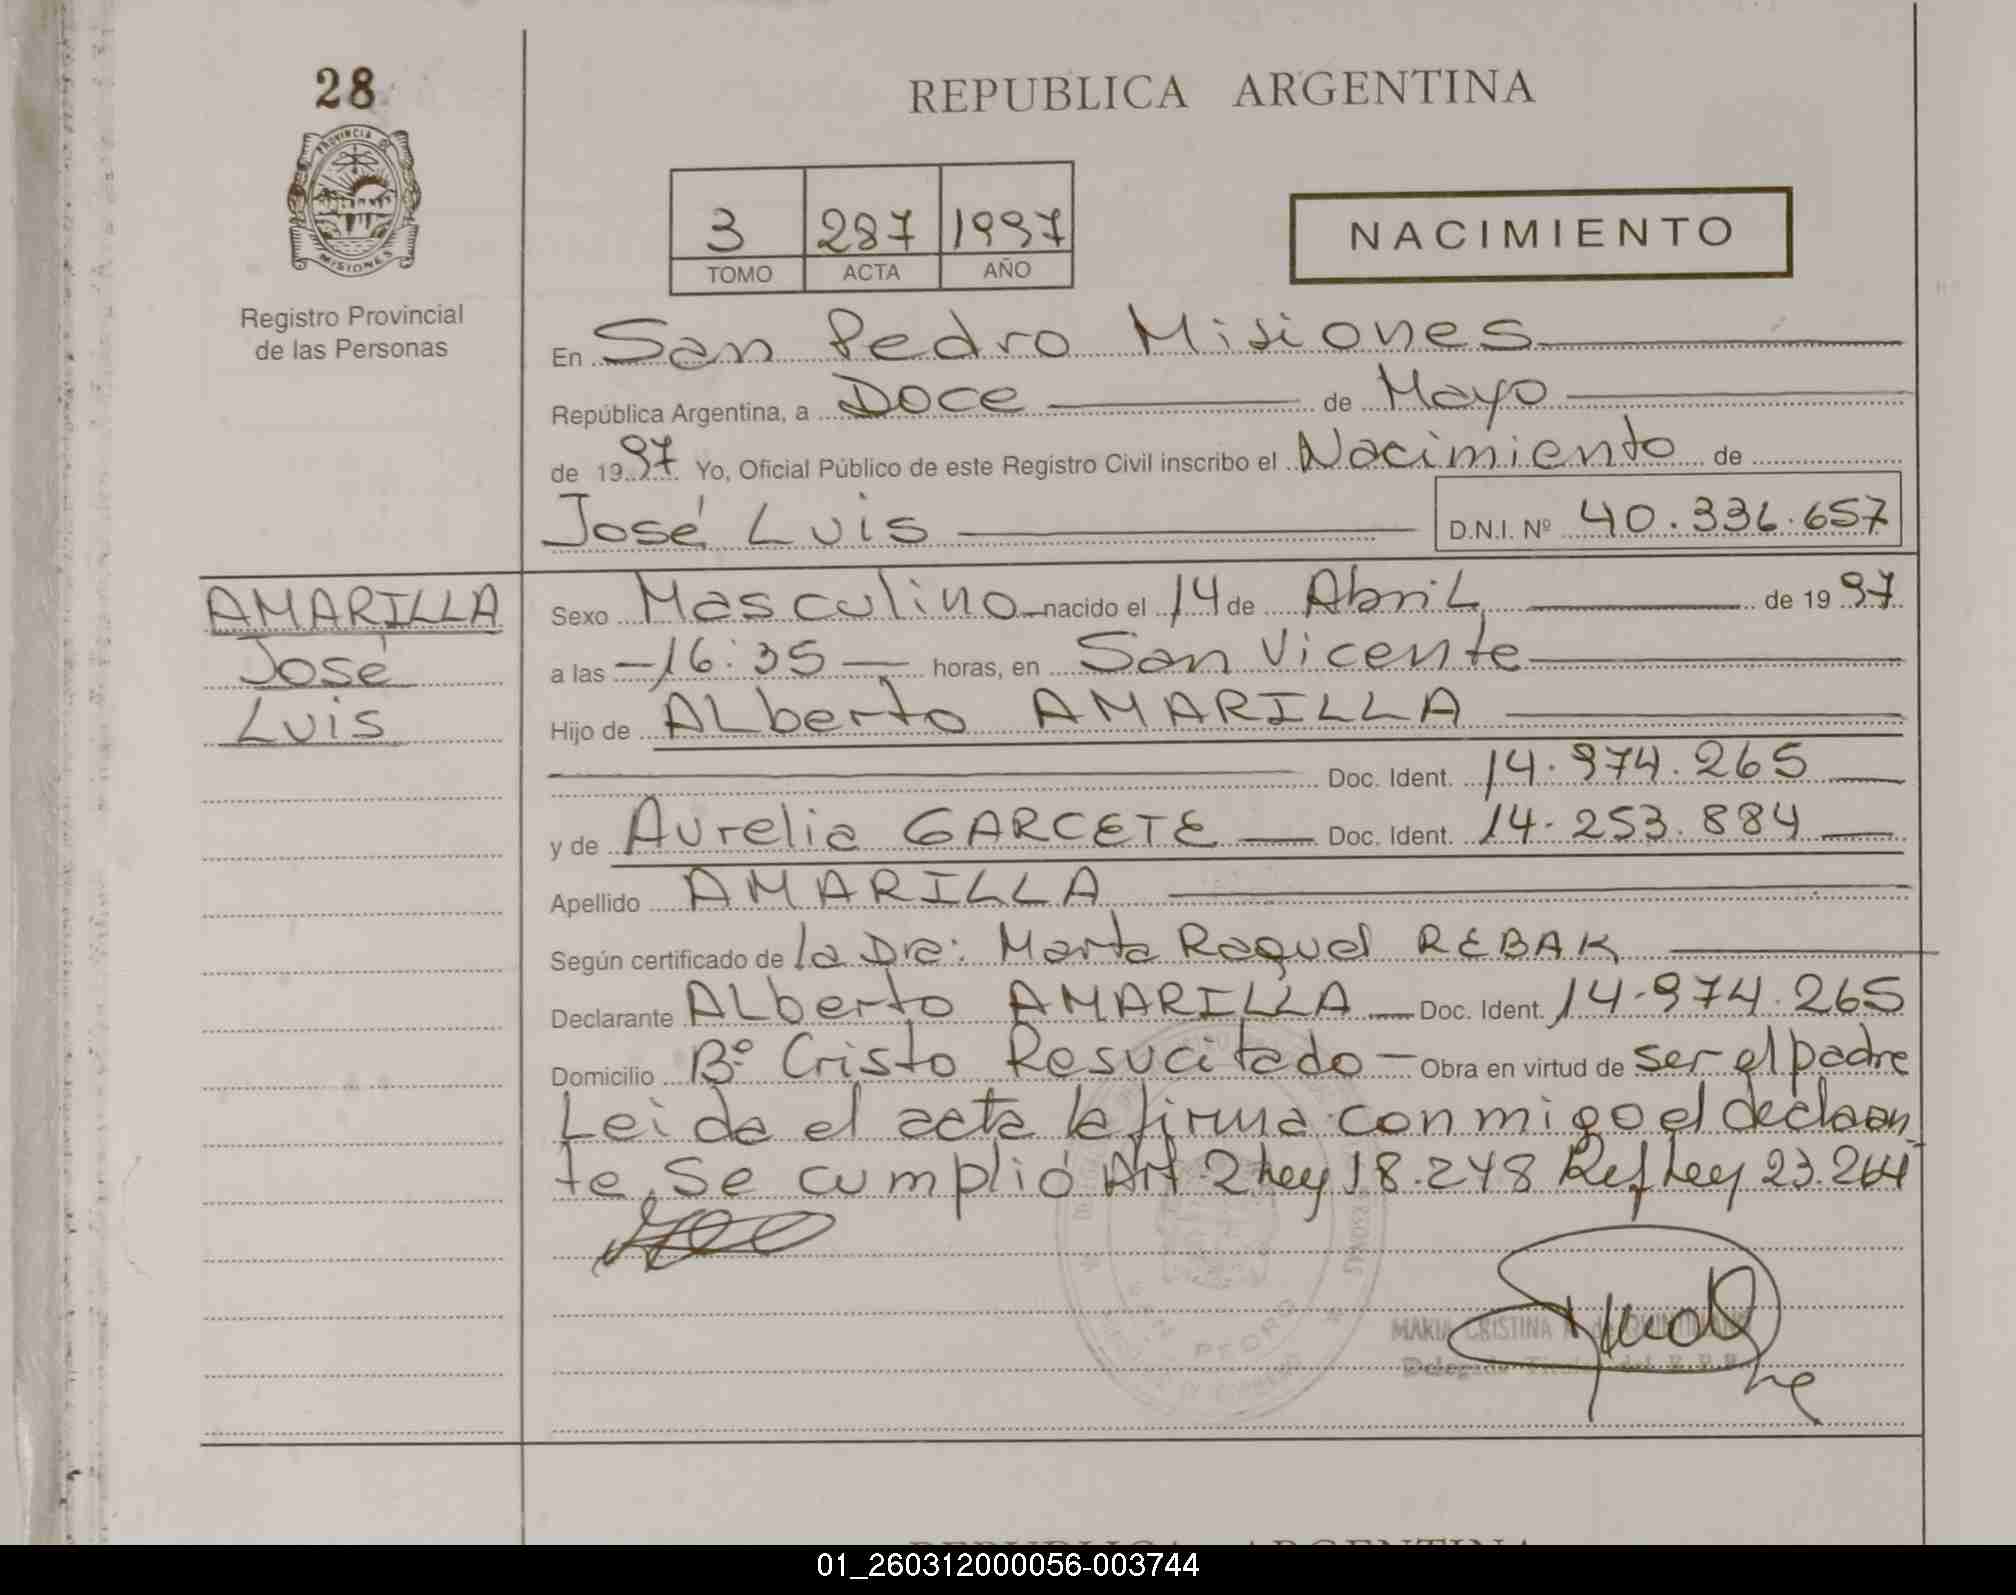 28
PROVINCIA DE
MISIONES
Registro Provincial
de las Personas
REPUBLICA ARGENTINA
3 287 1997
TOMO ACTA AÑO
NACIMIENTO
En San Pedro Misiones
República Argentina, a Doce de Mayo
de 1997 Yo, Oficial Público de este Registro Civil inscribo el Nacimiento de
José Luis D.N.I. Nº 40.336.657
AMARILLA
José
Luis
Sexo Masculino nacido el 14 de Abril de 1997
a las 16:35 horas, en San Vicente
Hijo de ALberto AMARILLA
Doc. Ident. 14.974.265
y de Aurelia GARCETE Doc. Ident. 14.253.884
Apellido AMARILLA
Según certificado de la Dra: Marta Raquel REBAK
Declarante ALberto AMARILLA Doc. Ident. 14.974.265
Domicilio Bº Cristo Resucitado Obra en virtud de ser el padre
Leida el acta la firma conmigo el declaran
te, Se cumplió Art 2 Ley 18.248 Ref Ley 23.264
MARIA CRISTINA
PEDRO
REPUBLICA ARGENTINA
01_260312000056-003744